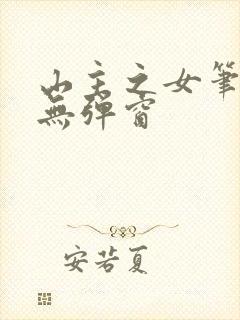 山主之女筆
無彈窗
安若夏